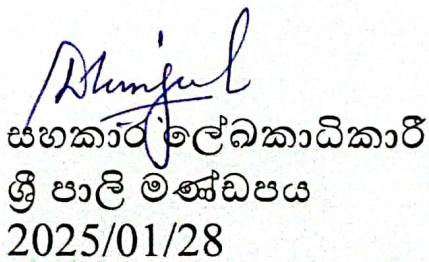 සහකාර ලේඛකාධිකාරී
ශ්‍රී පාලි මණ්ඩපය
2025/01/28